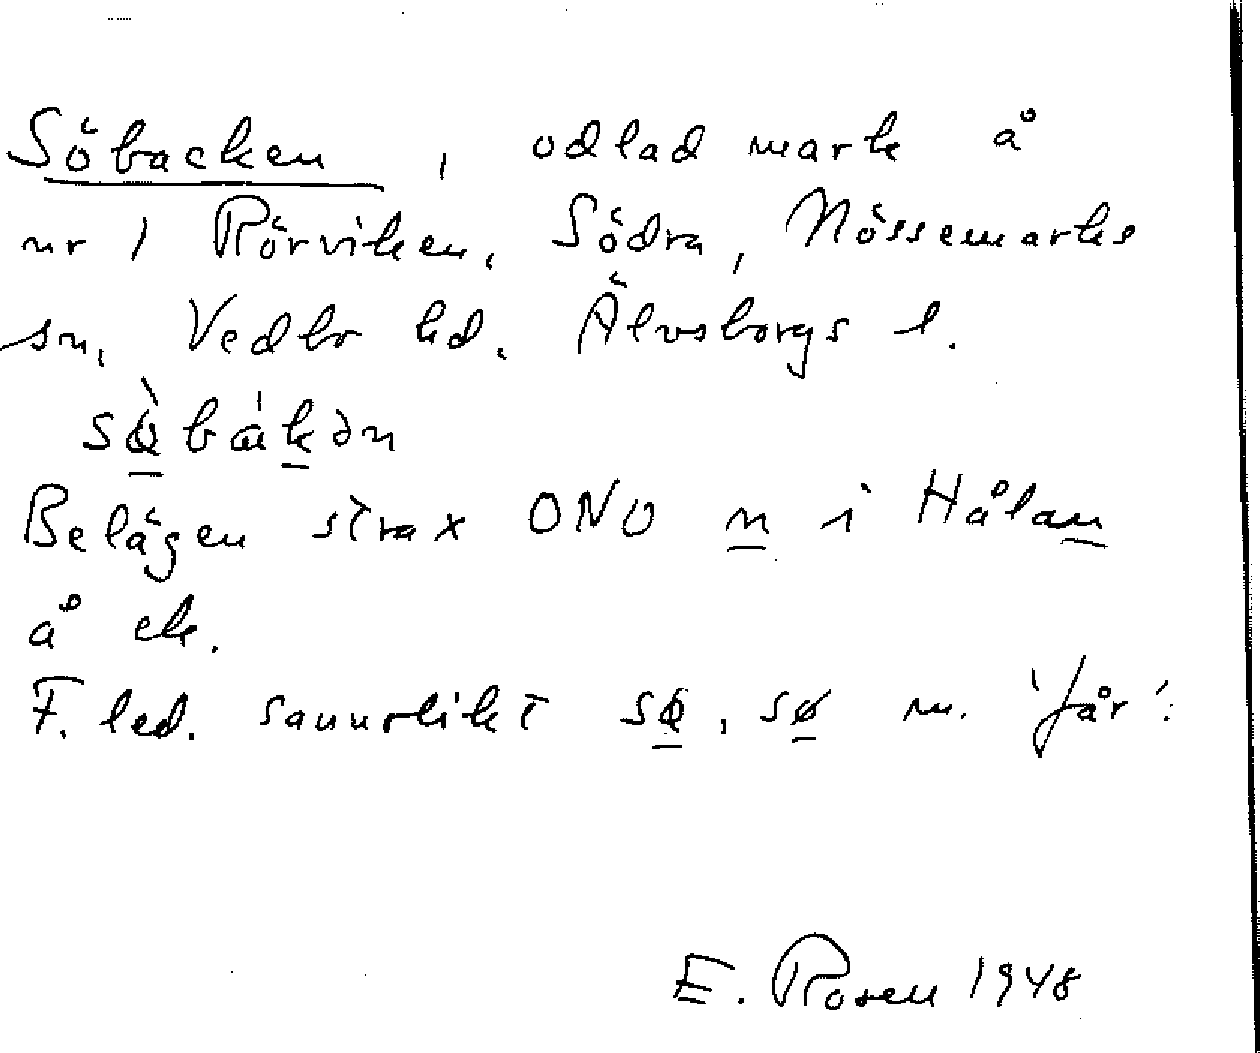 Söbacken, odlad mark å
nr 1 Rörviken, Södra, Nössemarks
sn, Vedbo hd. Älvsborgs l.
sø̀bákən
Belägen strax ONO n i Hålan
å ek.
F. led. sannolikt sø, sø m. 'får'.
E. Rosen 1948